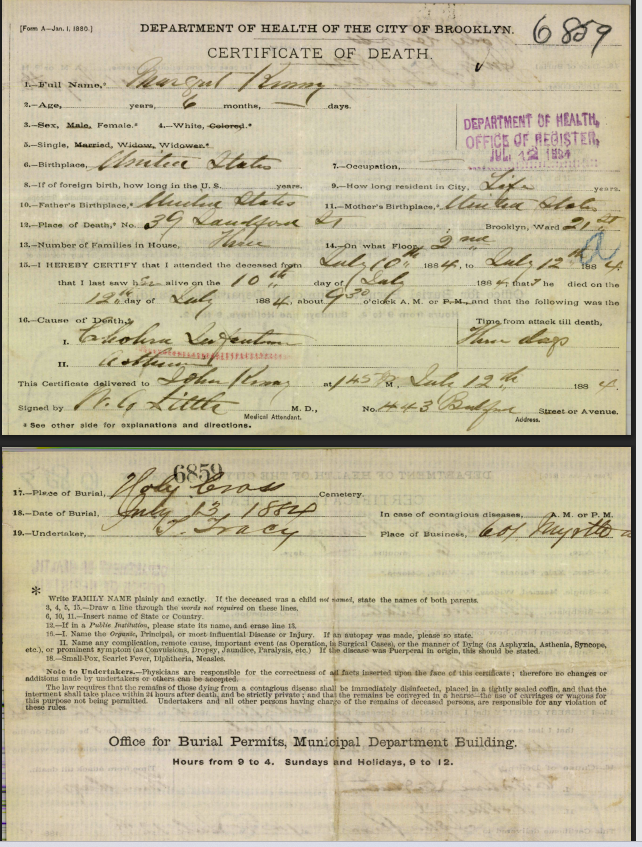 [Form A—Jan. 1, 1880.]
DEPARTMENT OF HEALTH OF THE CITY OF BROOKLYN.
6859
CERTIFICATE OF DEATH.
1.—Full Name,* Margret Kinny
2.—Age, years, 6 months, — days.
3.—Sex, Male, Female.* 4.—White, Colored.*
DEPARTMENT OF HEALTH,
OFFICE OF REGISTER,
JUL 12 1884
5.—Single, Married, Widow, Widower.*
6.—Birthplace, United States 7.—Occupation,
8.—If of foreign birth, how long in the U. S. years. 9.—How long resident in City, Life years.
10.—Father's Birthplace,* United States 11.—Mother's Birthplace,* United States
12.—Place of Death,* No. 39 Sandford St Brooklyn, Ward 21st
13.—Number of Families in House, Three 14.—On what Floor, 2nd
15.—I HEREBY CERTIFY that I attended the deceased from July 10th 1884, to July 12th 1884.
that I last saw her alive on the 10th day of July 1884, that she died on the
12th day of July 1884, about 9 30 o'clock A. M. or P. M., and that the following was the
16.—Cause of Death:* Time from attack till death,
I. Cholera Infantum Three days
II.
This Certificate delivered to John Kinny at 1 45 P M. July 12th 1884.
Signed by W. G Little M. D., No. 443 Bedford Street or Avenue.
Medical Attendant. Address.
* See other side for explanations and directions.
6859
17.—Place of Burial, Holy Cross Cemetery.
18.—Date of Burial, July 13 1884 In case of contagious diseases, A. M. or P. M.
19.—Undertaker, T. Tracy Place of Business, 601 Myrtle a
* Write FAMILY NAME plainly and exactly. If the deceased was a child not named, state the names of both parents.
3, 4, 5, 15.—Draw a line through the words not required on these lines.
6, 10, 11.—Insert name of State or Country.
12.—If in a Public Institution, please state its name, and erase line 13.
16.—I. Name the Organic, Principal, or most-influential Disease or Injury. If an autopsy was made, please so state.
II. Name any complication, remote cause, important event (as Operation, in Surgical Cases), or the manner of Dying (as Asphyxia, Asthenia, Syncope,
etc.), or prominent symptom (as Convulsions, Dropsy, Jaundice, Paralysis, etc.) If the disease was Puerperal in origin, this should be stated.
18.—Small-Pox, Scarlet Fever, Diphtheria, Measles.
Note to Undertakers.—Physicians are responsible for the correctness of all facts inserted upon the face of this certificate; therefore no changes or
additions made by undertakers or others can be accepted.
The law requires that the remains of those dying from a contagious disease shall be immediately disinfected, placed in a tightly sealed coffin, and that the
interment shall take place within 24 hours after death, and be strictly private; and that the remains be conveyed in a hearse—the use of carriages or wagons for
this purpose not being permitted. Undertakers and all other persons having charge of the remains of deceased persons, are responsible for any violation of
these rules.
Office for Burial Permits, Municipal Department Building.
Hours from 9 to 4. Sundays and Holidays, 9 to 12.